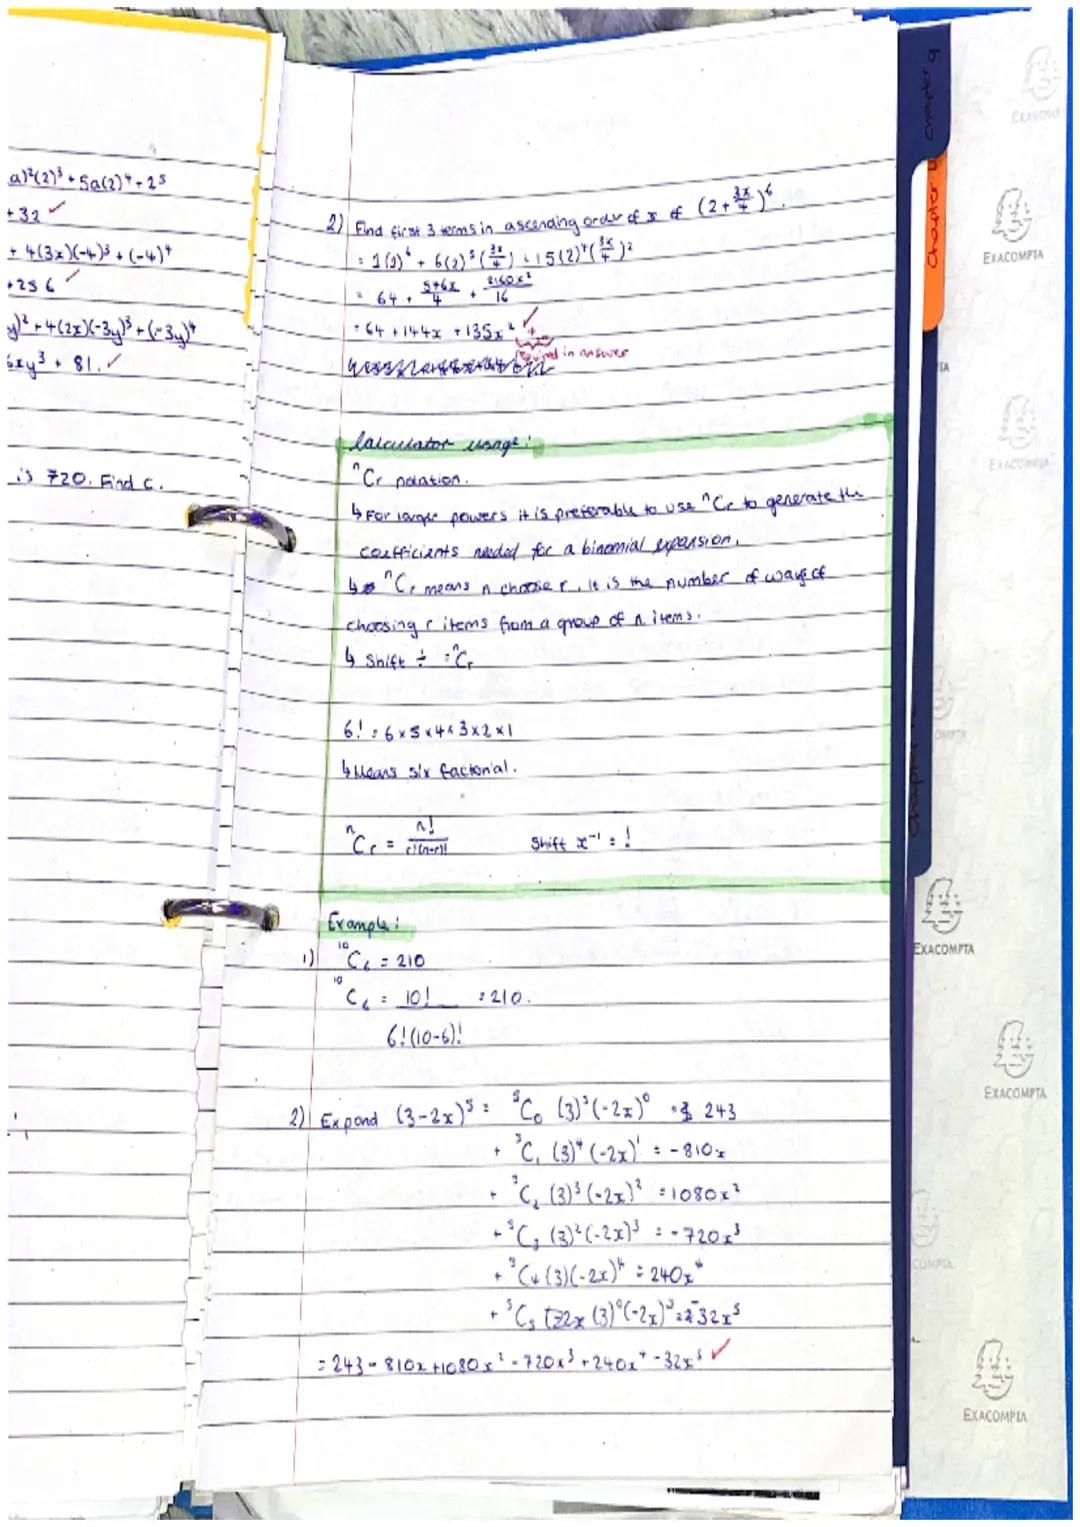 a)²(2)³ + 5a(2)⁴ + 2⁵
+ 32 ✓
+ 4(3x)(-4)³ + (-4)⁴
+256 ✓
y)² + 4(2x)(-3y)³ + (-3y)⁴
6xy³ + 81. ✓
is 720. Find c.
2) Find first 3 terms in ascending order of x of (2 + 3x/4)⁶.
= 1(2)⁶ + 6(2)⁵(3x/4) + 15(2)⁴(3x/4)²
= 64 + 576x/4 + 2160x²/16
= 64 + 144x + 135x² ✓ + ...
required in answer
Calculator usage:
ⁿCr notation.
↳ For larger powers it is preferable to use ⁿCr to generate the
coefficients needed for a binomial expansion.
↳ ⁿCr means n choose r, it is the number of ways of
choosing r items from a group of n items.
↳ Shift ÷ = ⁿCr
6! = 6×5×4×3×2×1
↳ Means six factorial.
ⁿCr = n!/r!(n-r)! Shift x⁻¹ = !
Example:
1) ¹⁰C₆ = 210
¹⁰C₆ = 10! = 210.
6!(10-6)!
2) Expand (3-2x)⁵ = ⁵C₀ (3)⁵(-2x)⁰ = 243
+ ⁵C₁ (3)⁴(-2x)¹ = -810x
+ ⁵C₂ (3)³(-2x)² = 1080x²
+ ⁵C₃ (3)²(-2x)³ = -720x³
+ ⁵C₄ (3)(-2x)⁴ = 240x⁴
+ ⁵C₅ (3)⁰(-2x)⁵ = -32x⁵
= 243 - 810x + 1080x² - 720x³ + 240x⁴ - 32x⁵ ✓
Chapter 9
Chapter
Chapter
EXACOMPTA
EXACOMPTA
EXACOMPTA
EXACOMPTA
EXACOMPTA
EXACOMPTA